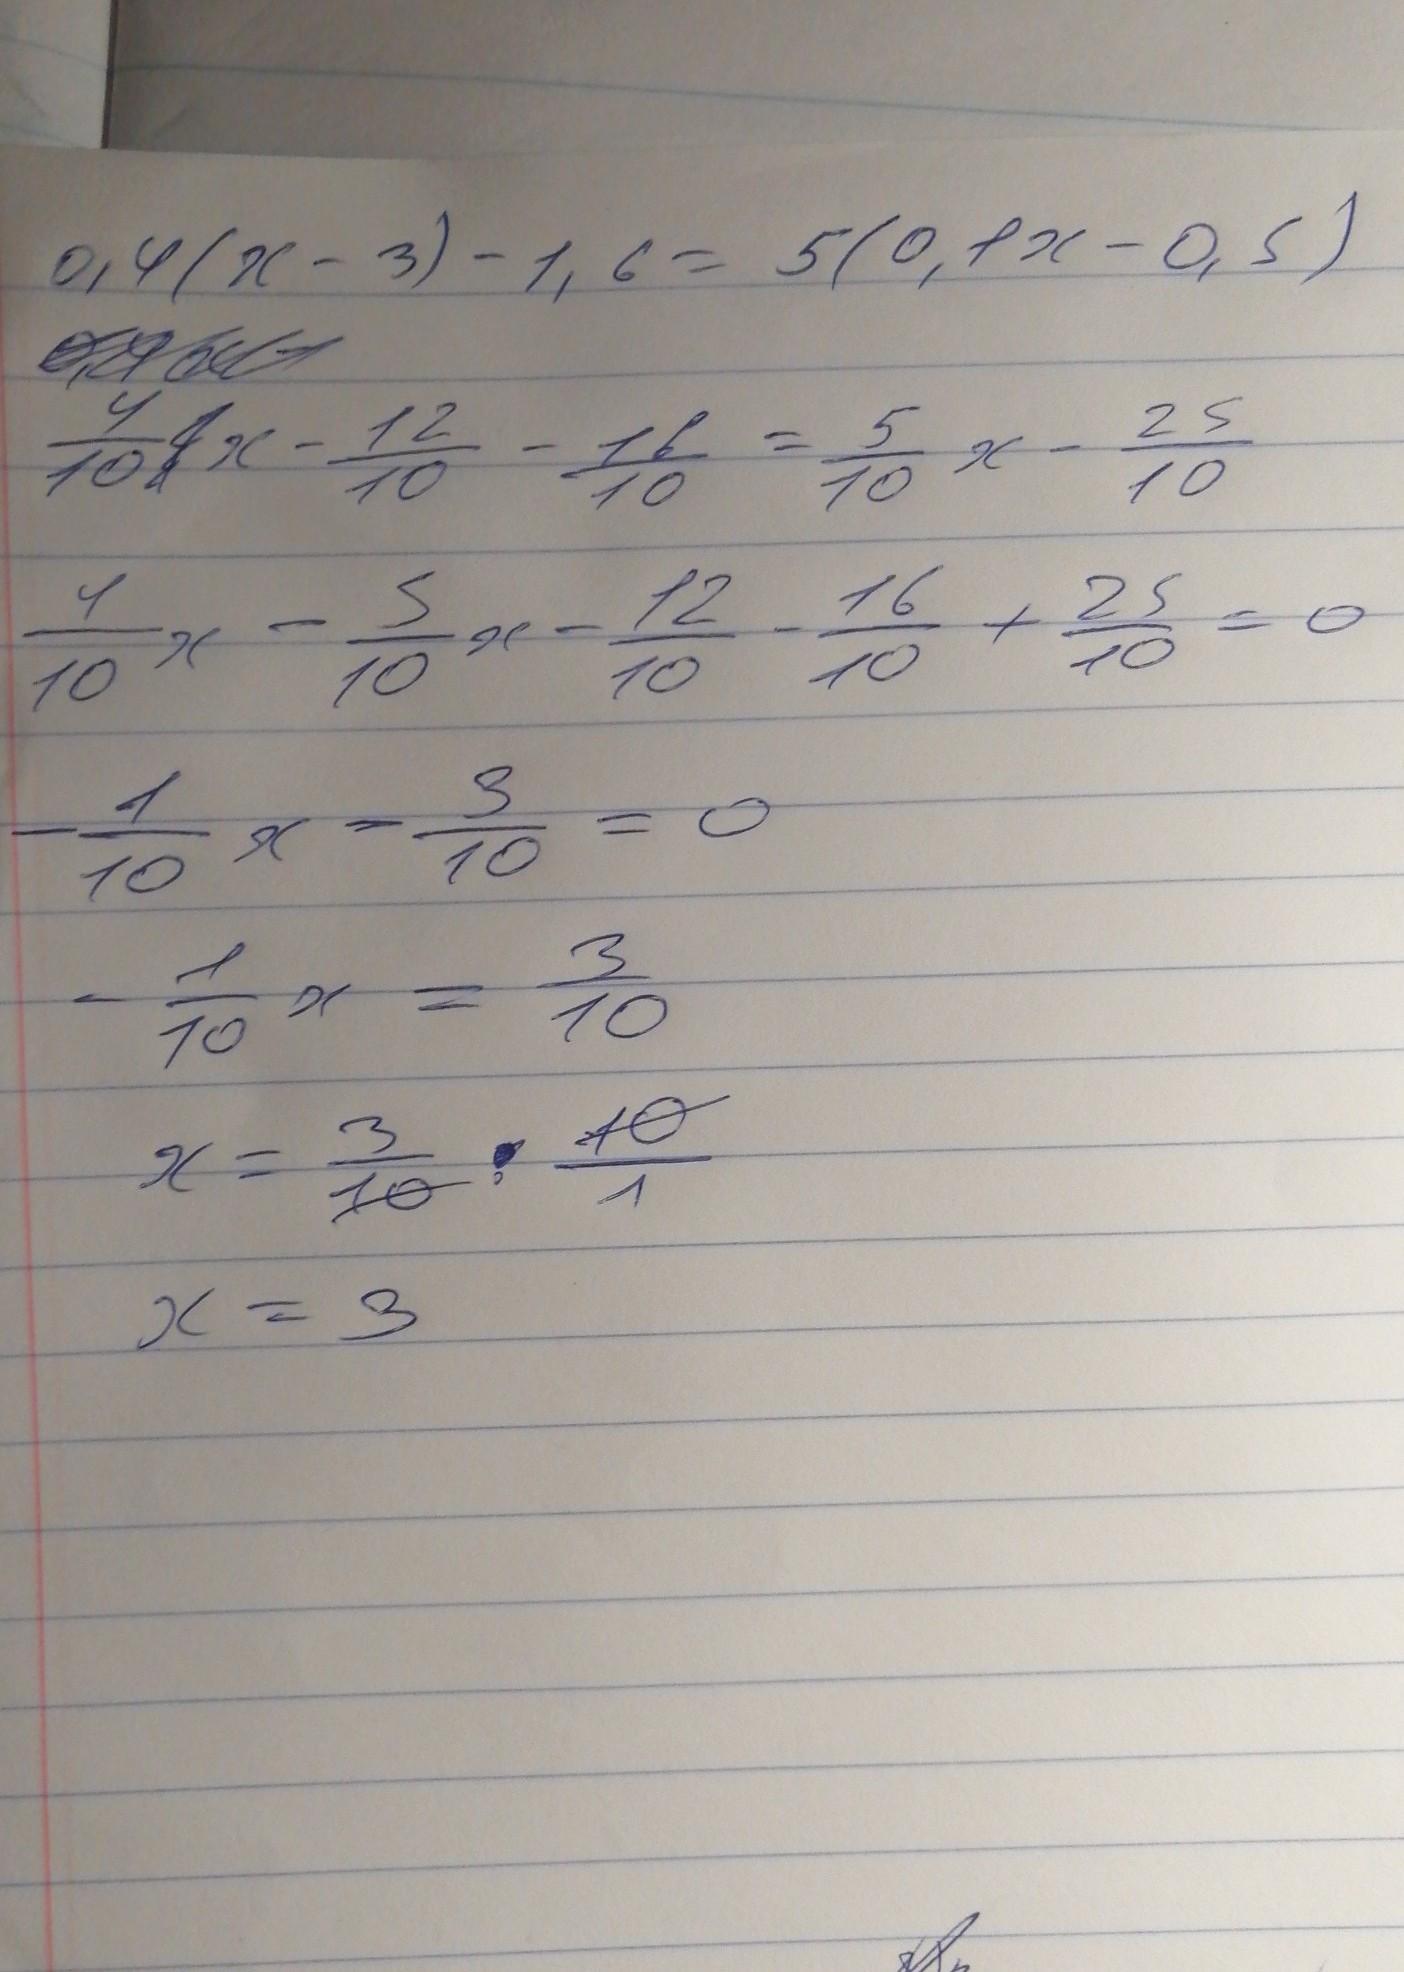 0,4(x - 3) - 1,6 = 5(0,1x - 0,5)
4/10 x - 12/10 - 16/10 = 5/10 x - 25/10
4/10 x - 5/10 x - 12/10 - 16/10 + 25/10 = 0
- 1/10 x - 3/10 = 0
- 1/10 x = 3/10
x = 3/10 · 10/1
x = 3